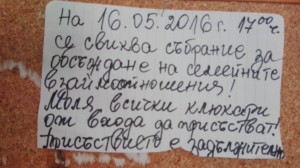 На 16.05.2016 г. 17⁰⁰ч.
се свиква събрание за
обсъждане на семейните
взаимоотношения!
Моля всички клюкари
от входа да присъстват!
Присъствието е задължително